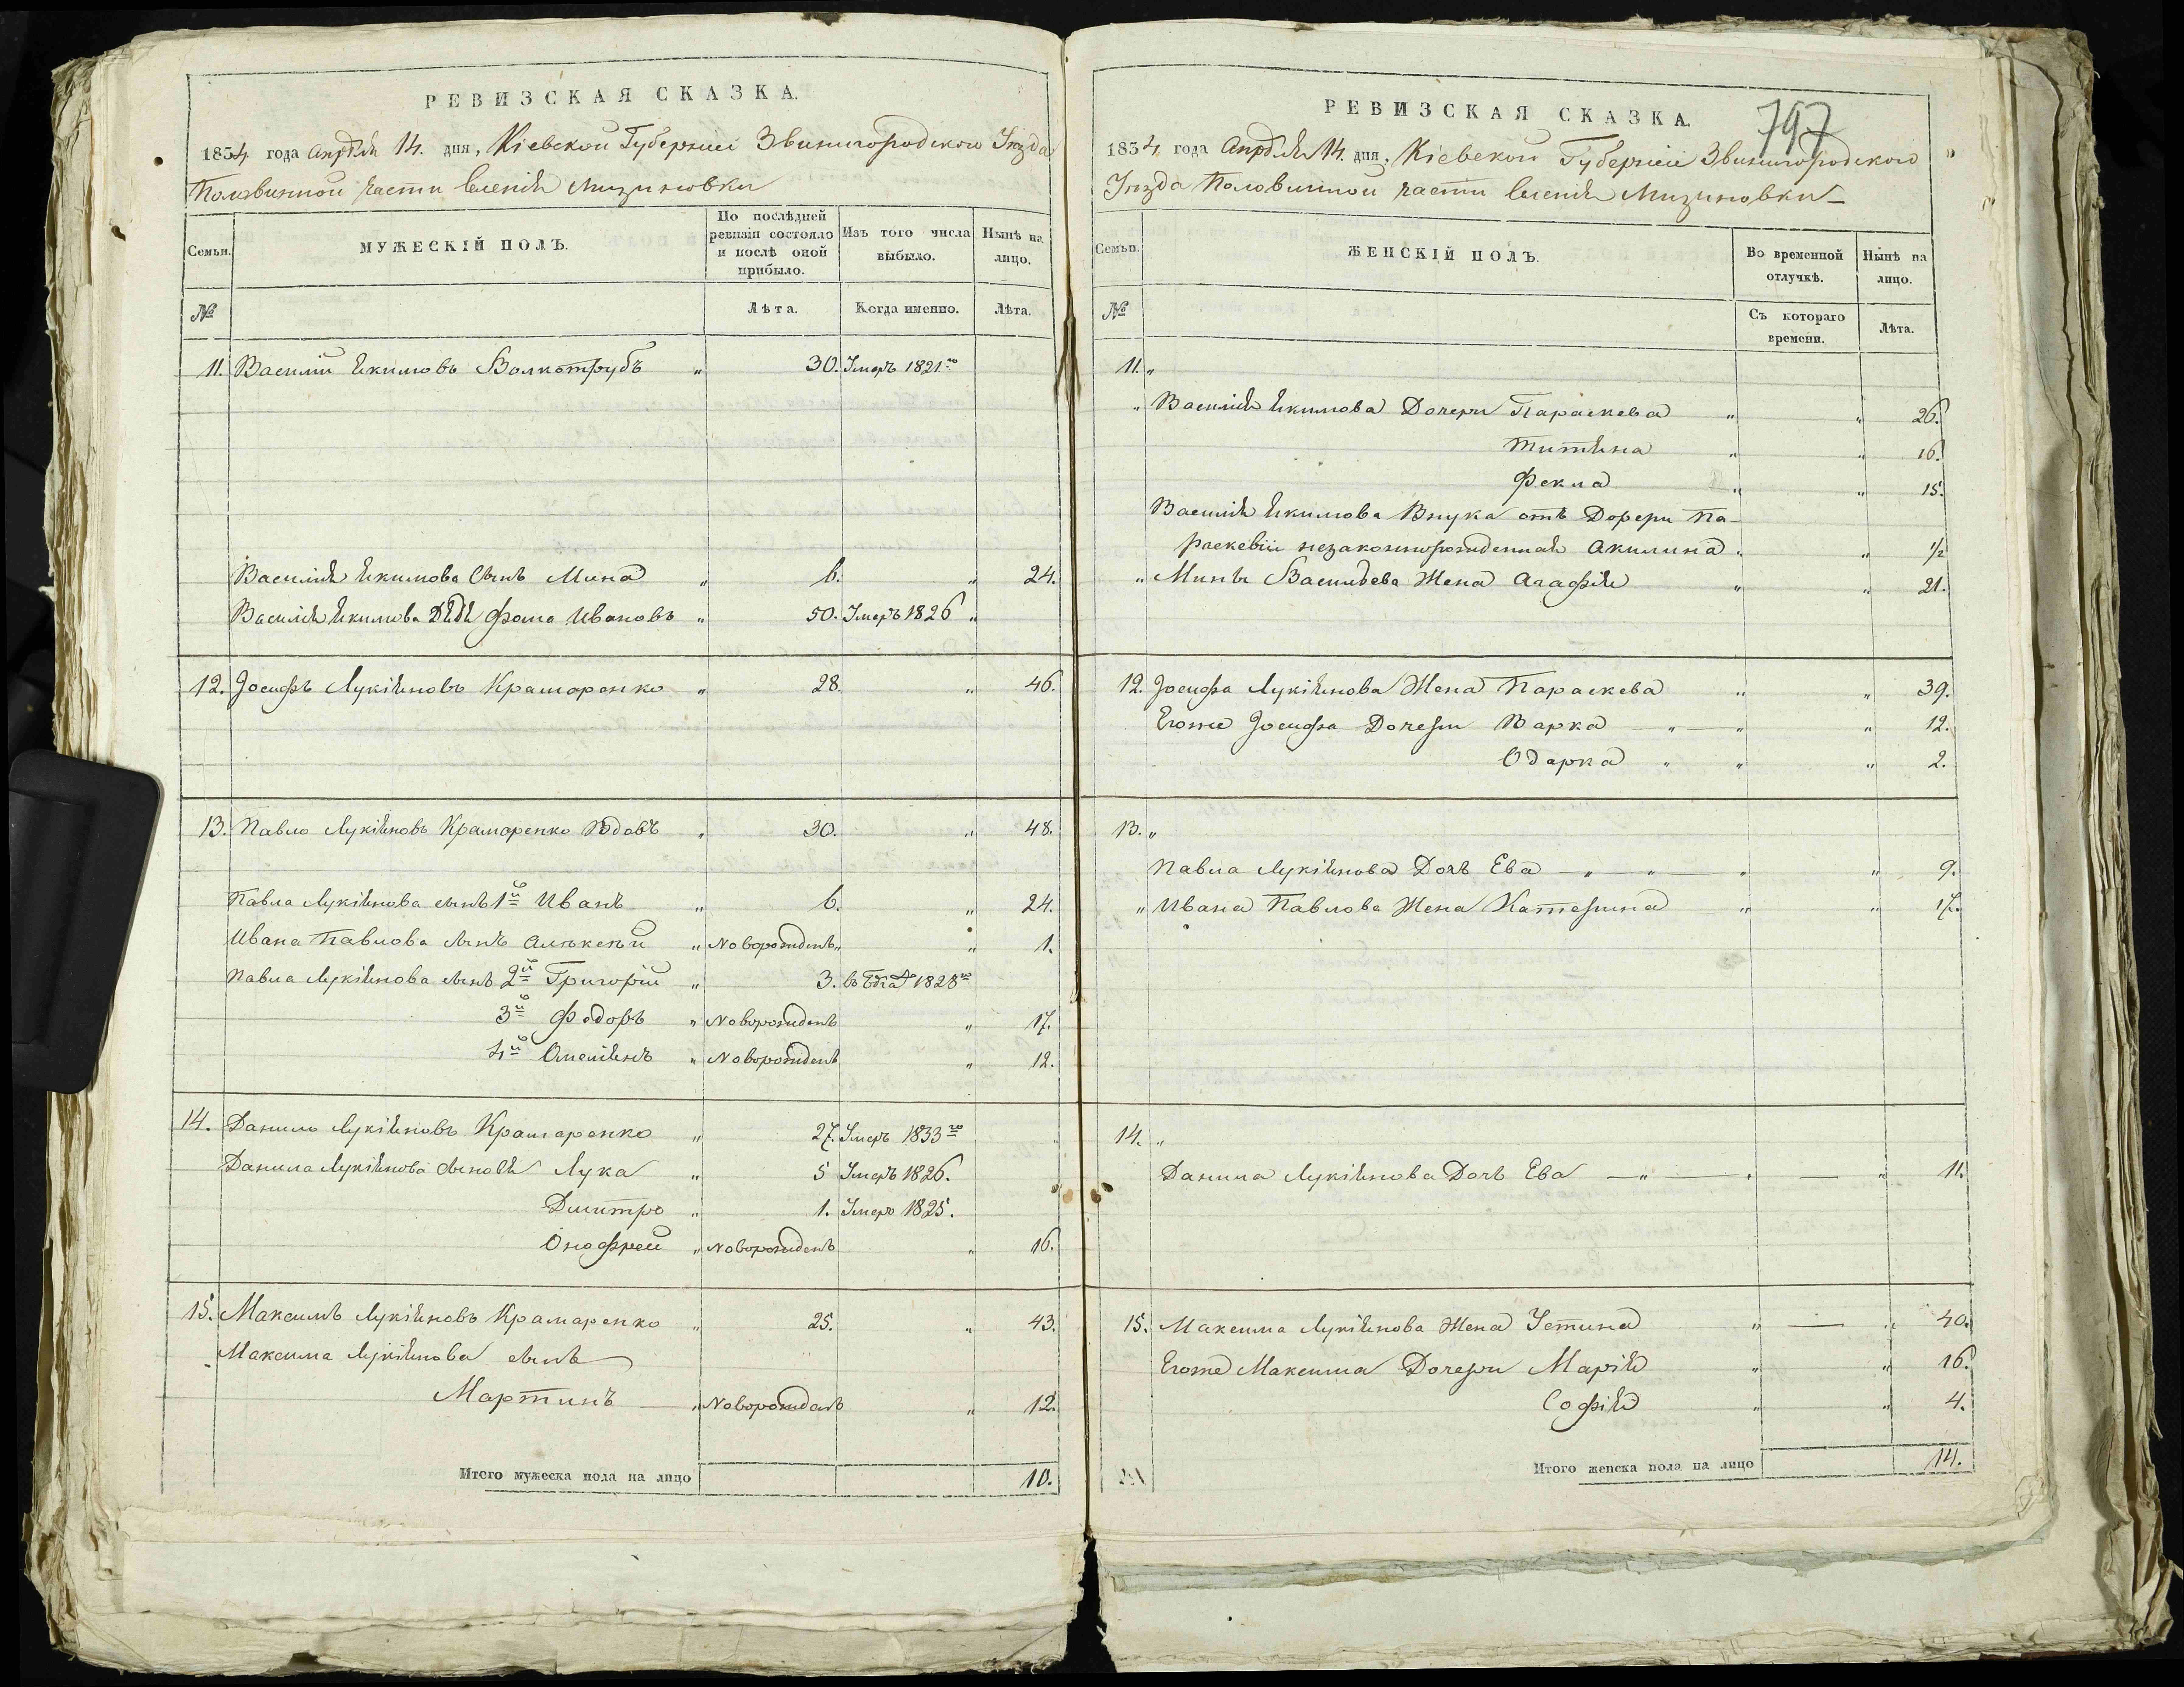 РЕВИЗСКАЯ СКАЗКА.
1834 года Апрѣля 14. дня, Кіевской Губерніи Звенигородскаго Уѣзда
Половинной части селенія Мизиновки
Семьи.
МУЖЕСКІЙ ПОЛЪ.
По послѣдней ревизіи состояло и послѣ оной прибыло.
Изъ того числа выбыло.
Нынѣ на лицо.
№
Лѣта.
Когда именно.
Лѣта.
11. Василій Якимовъ „ 30. Умеръ 1821го
Василія Якимова Сынъ Мина „ 6. „ 24.
Василія Якимова Дядя Фома Ивановъ „ 50. Умеръ 1826 „
12. Іосифъ Лукіяновъ Крамаренко „ 28. „ 46.
13. Павло Лукіяновъ Крамаренко Вдовъ „ 30. „ 48.
Павла Лукіянова сынъ 1й Иванъ „ 6. „ 24.
Ивана Павлова сынъ Алексѣй „ Новорожденъ „ „ 1.
Павла Лукіянова сынъ 2й Григорій „ 3. въ 1828го
3й Федоръ „ Новорожденъ „ 17.
4й Омеліянъ „ Новорожденъ „ 12.
14. Данило Лукіяновъ Крамаренко „ 27. Умеръ 1833го
Данила Лукіянова сыновья Лука „ 5 Умеръ 1826.
Дмитро „ 1. Умеръ 1825.
Онофрей „ Новорожденъ „ 16.
15. Максимъ Лукіяновъ Крамаренко „ 25. „ 43.
Максима Лукіянова сынъ
Мартинъ „ Новорожденъ „ 12.
Итого мужеска пола на лицо 10.
797
РЕВИЗСКАЯ СКАЗКА.
1834 года Апрѣля 14. дня, Кіевской Губерніи Звенигородскаго
Уѣзда Половинной части селенія Мизиновки
Семьи.
ЖЕНСКІЙ ПОЛЪ.
Во временной отлучкѣ.
Нынѣ на лицо.
№
Съ котораго времени.
Лѣта.
11. „
„ Василія Якимова Дочери Параскева „ „ 26.
Татіяна „ „ 16.
Фекла „ „ 15.
Василія Якимова Внука отъ Дочери Па-
раскевіи незаконнорожденная Акилина „ „ 1/2
„ Мины Васильева Жена Агафія „ „ 21.
12. Іосифа Лукіянова Жена Параскева „ „ 39.
Егоже Іосифа Дочери Варка „ „ „ 12.
Одарка „ „ „ 2.
13. „
Павла Лукіянова Дочь Ева „ „ „ „ 9.
„ Ивана Павлова Жена Катерина „ „ 17.
14. „
Данила Лукіянова Дочь Ева „ „ „ 11.
15. Максима Лукіянова Жена Устина „ „ 40.
Егоже Максима Дочери Марія „ „ 16.
Софія „ „ 4.
Итого женска пола на лицо 14.